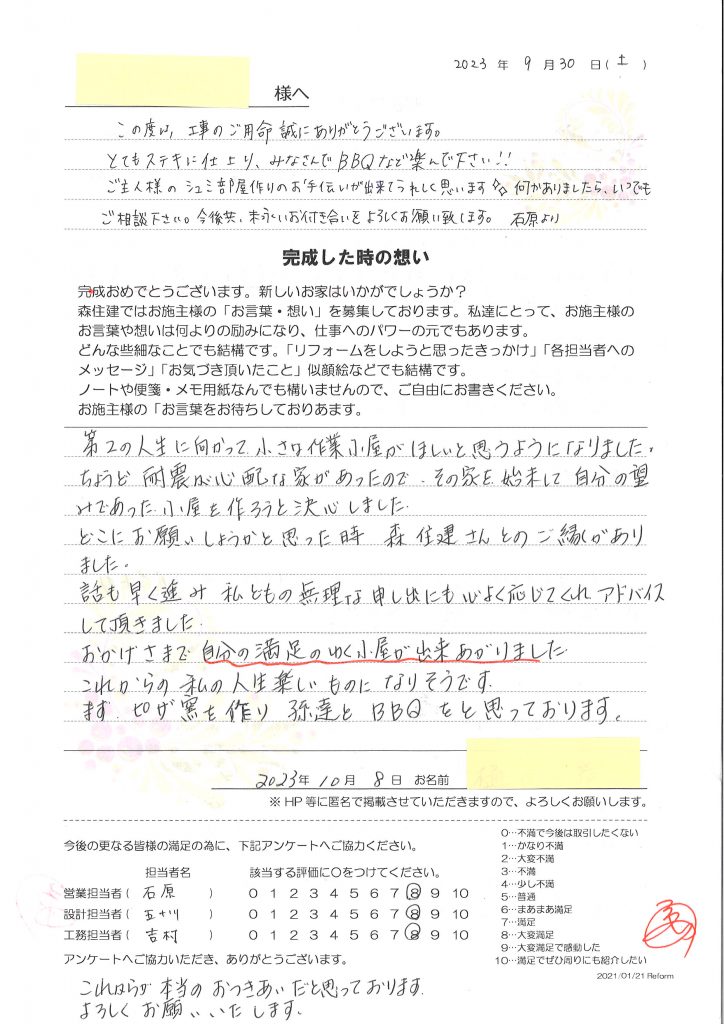 2023 年 9 月 30 日(土)
様へ
この度は、工事のご用命誠にありがとうございます。
とてもステキに仕上り、みなさんでBBQなど楽んで下さい!!
ご主人様のシュミ部屋作りのお手伝いが出来てうれしく思います☆ 何かありましたら、いつでも
ご相談下さい。今後共、末永いお付き合いをよろしくお願い致します。 石原より
完成した時の想い
完成おめでとうございます。新しいお家はいかがでしょうか?
森住建ではお施主様の「お言葉・想い」を募集しております。私達にとって、お施主様の
お言葉や想いは何よりの励みになり、仕事へのパワーの元でもあります。
どんな些細なことでも結構です。「リフォームをしようと思ったきっかけ」「各担当者への
メッセージ」「お気づき頂いたこと」似顔絵などでも結構です。
ノートや便箋・メモ用紙なんでも構いませんので、ご自由にお書きください。
お施主様の「お言葉をお待ちしておりあます。
第2の人生に向かって小さな作業小屋がほしいと思うようになりました。
ちょうど耐震が心配な家があったので、その家を始末して自分の望
みであった小屋を作ろうと決心しました.
どこにお願いしようかと思った時 森住建さんとのご縁があり
ました.
話も早く進み 私どもの無理な申し出にも心よく応じてくれアドバイス
して頂きました.
おかげさまで自分の満足のゆく小屋が出来あがりました
これからの私の人生楽しいものになりそうです.
まず、ピザ窯を作り 孫達とBBQをと思っております。
2023年 10 月 8 日 お名前
※ HP 等に匿名で掲載させていただきますので、よろしくお願いします。
今後の更なる皆様の満足の為に、下記アンケートへご協力ください。
担当者名 該当する評価に〇をつけてください。
営業担当者( 石原 ) 0 1 2 3 4 5 6 7 8 9 10
設計担当者( 五十川 ) 0 1 2 3 4 5 6 7 8 9 10
工務担当者( 吉村 ) 0 1 2 3 4 5 6 7 8 9 10
アンケートへご協力いただき、ありがとうございます。
0…不満で今後は取引したくない
1…かなり不満
2…大変不満
3…不満
4…少し不満
5…普通
6…まあまあ満足
7…満足
8…大変満足
9…大変満足で感動した
10…満足でぜひ周りにも紹介したい
2021/01/21 Reform
これからが本当のおつきあいだと思っております.
よろしくお願いいたします.